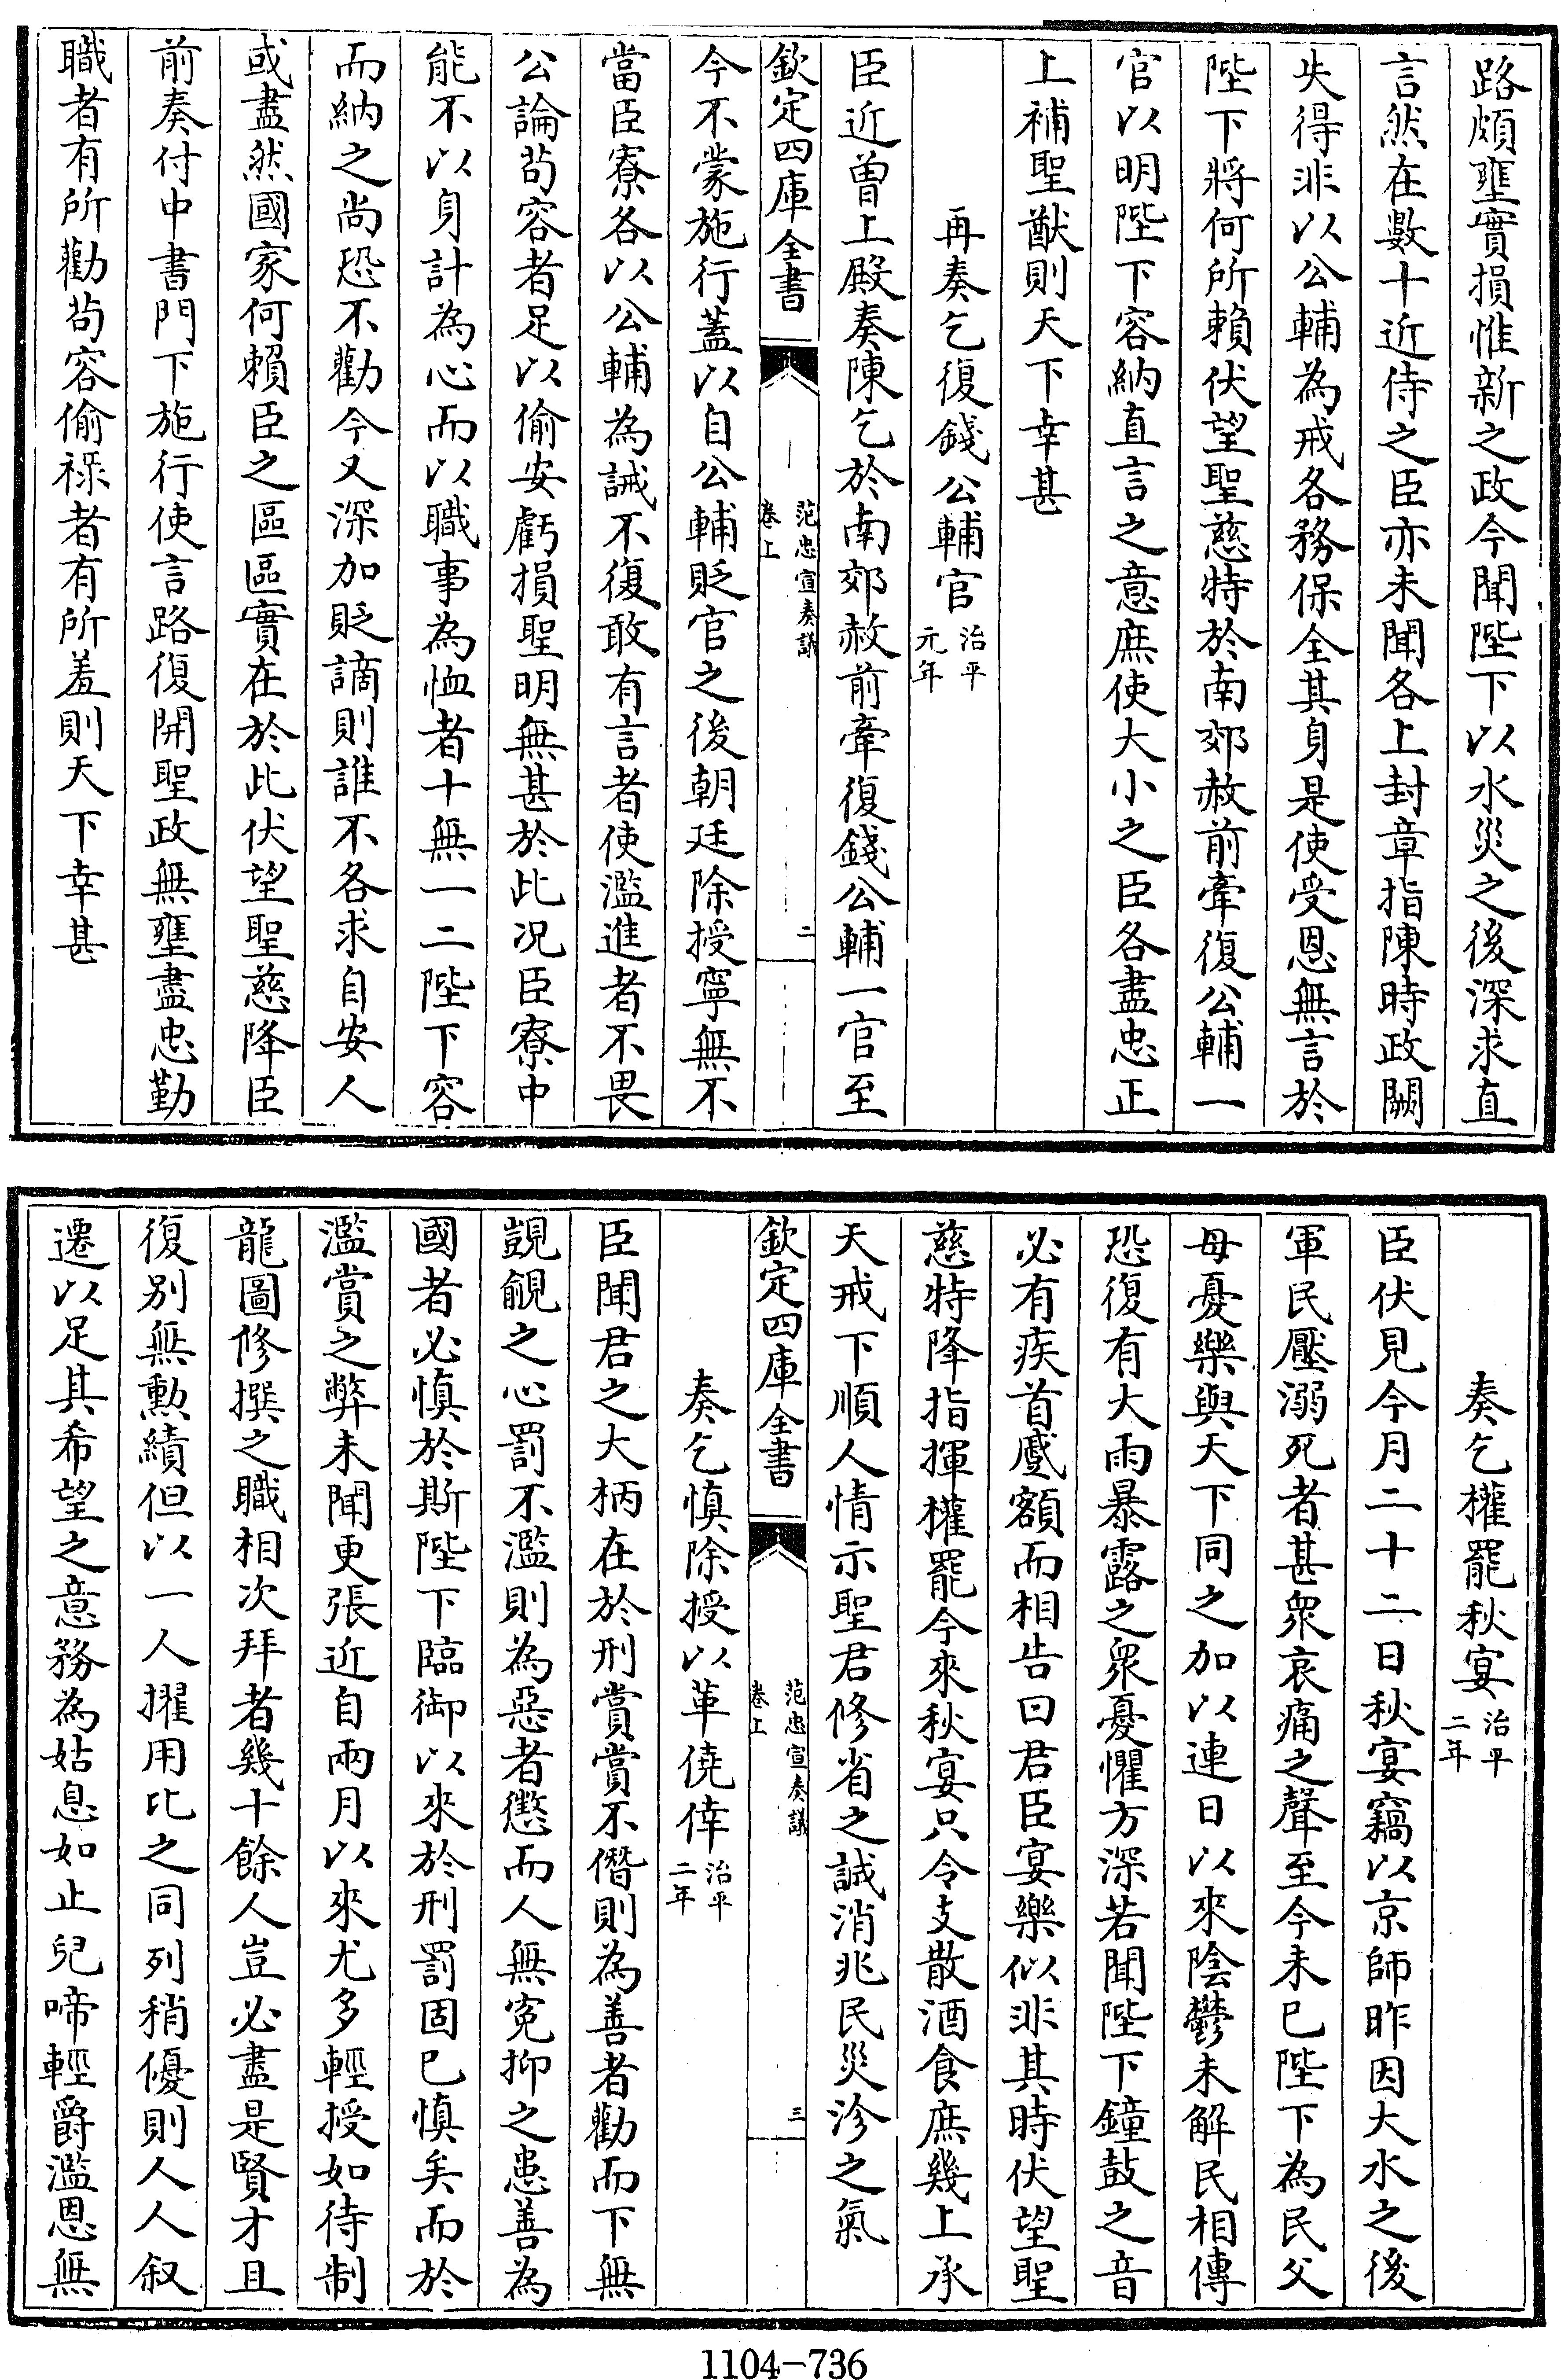 路頗壅實損惟新之政今聞陛下以水災之後深求直
言然在數十近侍之臣亦未聞各上封章指陳時政闕
失得非以公輔為戒各務保全其身是使受恩無言於
陛下將何所賴伏望聖慈特於南郊赦前牽復公輔一
官以明陛下容納直言之意庶使大小之臣各盡忠正
上補聖猷則天下幸甚
再奏乞復錢公輔官治平元年
臣近曾上殿奏陳乞於南郊赦前牽復錢公輔一官至
欽定四庫全書 范忠宣奏議 卷上 二
今不蒙施行蓋以自公輔貶官之後朝廷除授寧無不
當臣寮各以公輔為誡不復敢有言者使濫進者不畏
公論茍容者足以偷安虧損聖明無甚於此况臣寮中
能不以身計為心而以職事為恤者十無一二陛下容
而納之尚恐不勸今又深加貶謫則誰不各求自安人
或盡然國家何賴臣之區區實在於此伏望聖慈降臣
前奏付中書門下施行使言路復開聖政無壅盡忠勤
職者有所勸茍容偷祿者有所羞則天下幸甚
奏乞權罷秋宴治平二年
臣伏見今月二十二日秋宴竊以京師昨因大水之後
軍民壓溺死者甚衆哀痛之聲至今未已陛下為民父
母憂樂與天下同之加以連日以來陰鬱未解民相傳
恐復有大雨暴露之衆憂懼方深若聞陛下鐘鼓之音
必有疾首蹙額而相告曰君臣宴樂似非其時伏望聖
慈特降指揮權罷今來秋宴只令支散酒食庶幾上承
天戒下順人情示聖君修省之誠消兆民災沴之氣
欽定四庫全書 范忠宣奏議 卷上 三
奏乞慎除授以革僥倖治平二年
臣聞君之大柄在於刑賞賞不僭則為善者勸而下無
覬覦之心罰不濫則為惡者懲而人無寃抑之患善為
國者必慎於斯陛下臨御以來於刑罰固已慎矣而於
濫賞之弊未聞更張近自兩月以來尤多輕授如待制
龍圖修撰之職相次拜者幾十餘人豈必盡是賢才且
復別無勳績但以一人擢用比之同列稍優則人人叙
遷以足其希望之意務為姑息如止兒啼輕爵濫恩無
1104-736